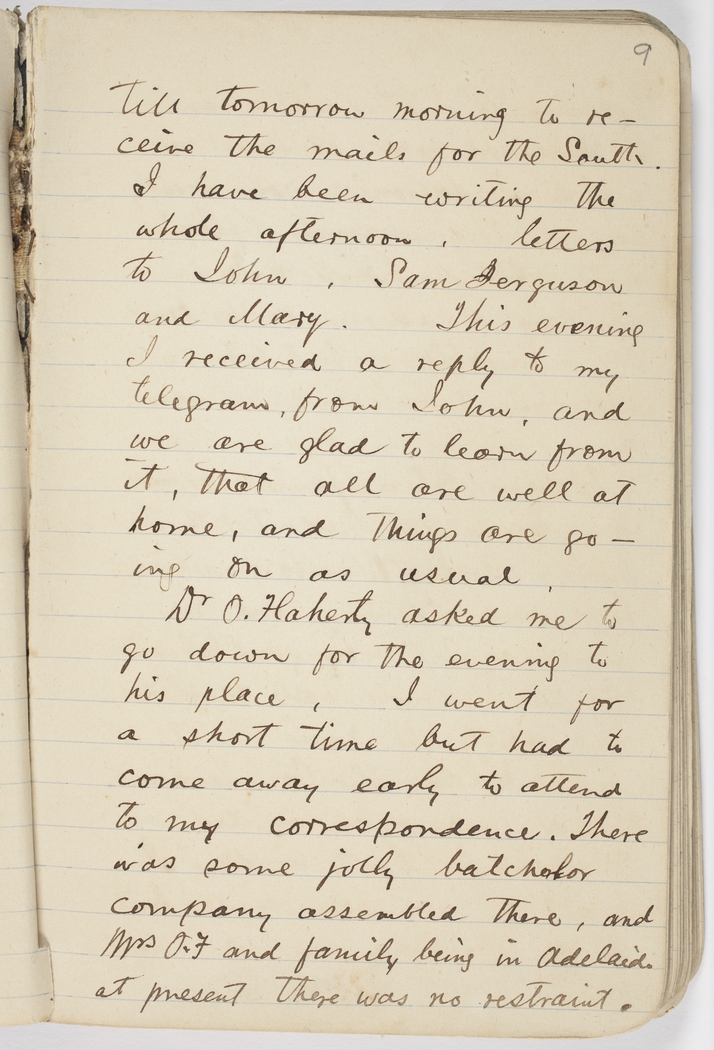 9
till tomorrow morning to re-
ceive the mails for the South.
I have been writing the
whole afternoon, letters
to John, Sam Ferguson
and Mary. This evening
I received a reply to my
telegram, from John, and
we are glad to learn from
it, that all are well at
home, and things are go-
ing on as usual.
Dr O.Flaherty asked me to
go down for the evening to
his place, I went for
a short time but had to
come away early to attend
to my correspondence. There
was some jolly batchelor
company assembled there, and
Mrs O.F and family being in Adelaide
at present there was no restraint.